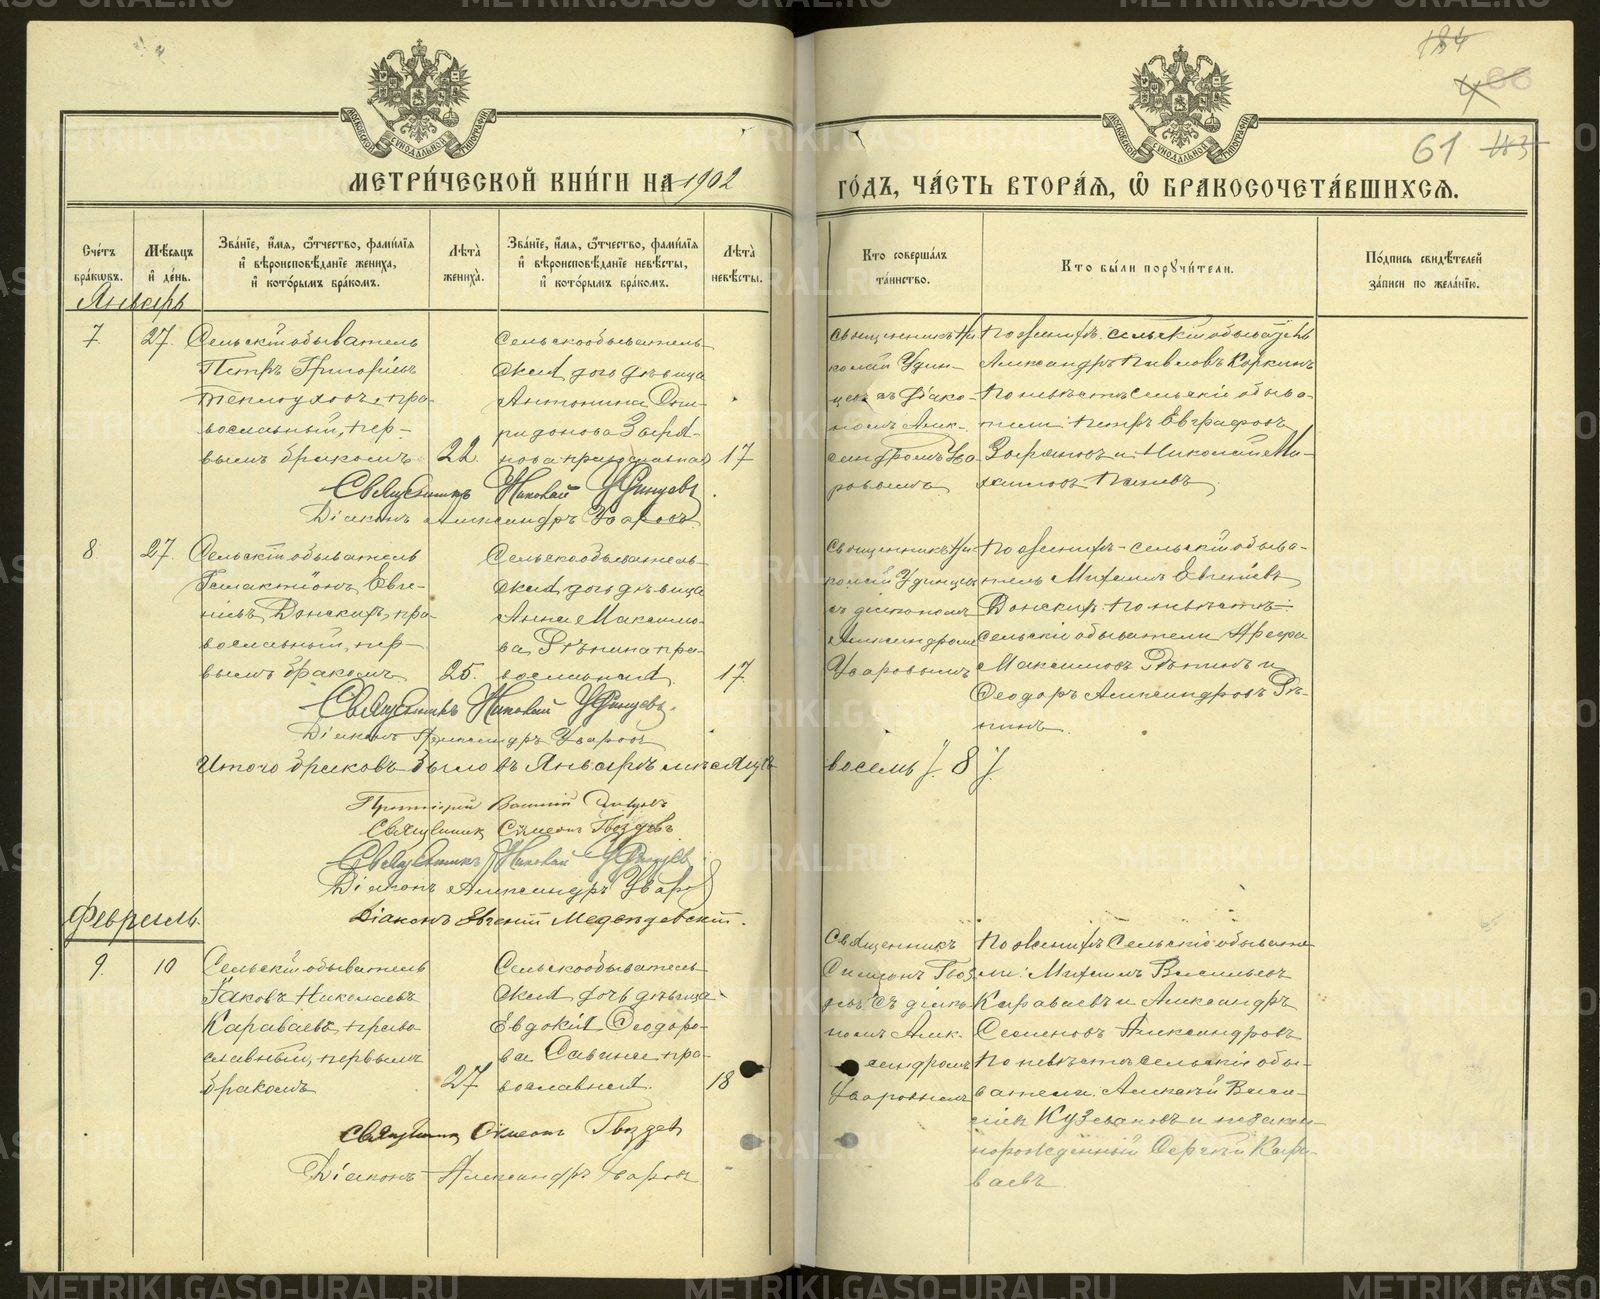 184
4 66
61 113
МЕТРИ́ЧЕСКОЙ КНИ́ГИ НА 1902
ГО́ДЪ, ЧА́СТЬ ВТОРА́Я, Ѡ҆ БРАКОСОЧЕТА́ВШИХСЯ.
Сче́тъ бра́ковъ.
Мѣ́сяцъ и҆ де́нь.
Зва́нїе, и҆́мя, ѻ҆́тчество, фами́лїя
и҆ вѣроисповѣ́данїе жениха̀,
и҆ кото́рымъ бра́комъ.
Лѣта̀ жениха̀.
Зва́нїе, и҆́мя, ѻ҆́тчество, фами́лїя
и҆ вѣроисповѣ́данїе невѣ́сты,
и҆ кото́рымъ бра́комъ.
Лѣта̀ невѣ́сты.
Кто соверша́лъ та́инство.
Кто бы́ли порꙋчи́тели.
По́дпись свидѣ́телей за́писи по жела́нїю.
Январь
7.
27.
Сельскій обыватель
Петръ Григоріевъ
Теплоуховъ, пра-
вославный, пер-
вымъ бракомъ
22.
Сельскообыватель-
ская дочь дѣвица
Антонина Спи-
ридонова Зыря-
нова православная
17
Священникъ Ни-
колай Удин-
цевъ съ діако-
номъ Алек-
сандромъ Ува-
ровымъ
По женихѣ сельскій обыватель
Александръ Павловъ Коркинъ
По невѣстѣ сельскіе обыва-
тели Петръ Евграфовъ
Зыряновъ и Николай Ми-
хаиловъ Паневъ
Священникъ Николай Удинцевъ.
Діаконъ Александръ Уваровъ
8
27.
Сельскій обыватель
Галактіонъ Евге-
ніевъ Донскихъ, пра-
вославный, пер-
вымъ бракомъ
25.
Сельскообыватель-
ская дочь дѣвица
Анна Максимо-
ва Рѣпина пра-
вославная
17.
Священникъ Ни-
колай Удинцевъ
съ діакономъ
Александромъ
Уваровымъ
По женихѣ - сельскій обыва-
тель Михаилъ Евгеніевъ
Донскихъ. По невѣстѣ -
сельскіе обыватели Арефа
Максимовъ Рѣпинъ и
Ѳеодоръ Александровъ Рѣ-
пинъ.
Священникъ Николай Удинцевъ.
Діаконъ Александръ Уваровъ
Итого браковъ было въ Январѣ мѣсяцѣ
восемь /. 8 /.
Протоіерей Василій
Священникъ Симеонъ Гвоздевъ
Священникъ Николай Удинцевъ
Діаконъ Александръ Уваровъ
Діаконъ Евгеній
Февраль.
9.
10
Сельскій обыватель
Іаковъ Николаевъ
Караваевъ, право-
славный, первымъ
бракомъ
27
Сельскообыватель-
ская дочь дѣвица
Евдокія Ѳеодоро-
ва Савина пра-
вославная.
18
Священникъ
Симеонъ Гвоз-
девъ съ діако-
номъ Алек-
сандромъ
Уваровымъ
По женихѣ Сельскіе обывате-
ли: Михаилъ Васильевъ
Караваевъ и Александръ
Семеновъ Александровъ
По невѣстѣ сельскіе обы-
ватели Алексѣй Васи-
ліевъ Кузвановъ и незакон-
норожденный Сергѣй Кара-
ваевъ
Священникъ Симеонъ Гвоздевъ
Діаконъ Александръ Уваровъ
METRIKI.GASO-URAL.RU